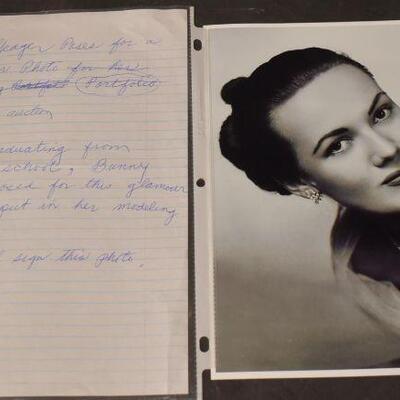 Yeager Poses for a
Photo for her
Portfolio
auction
graduating from
school, Bunny
posed for this glamour
put in her modeling
sign this photo.